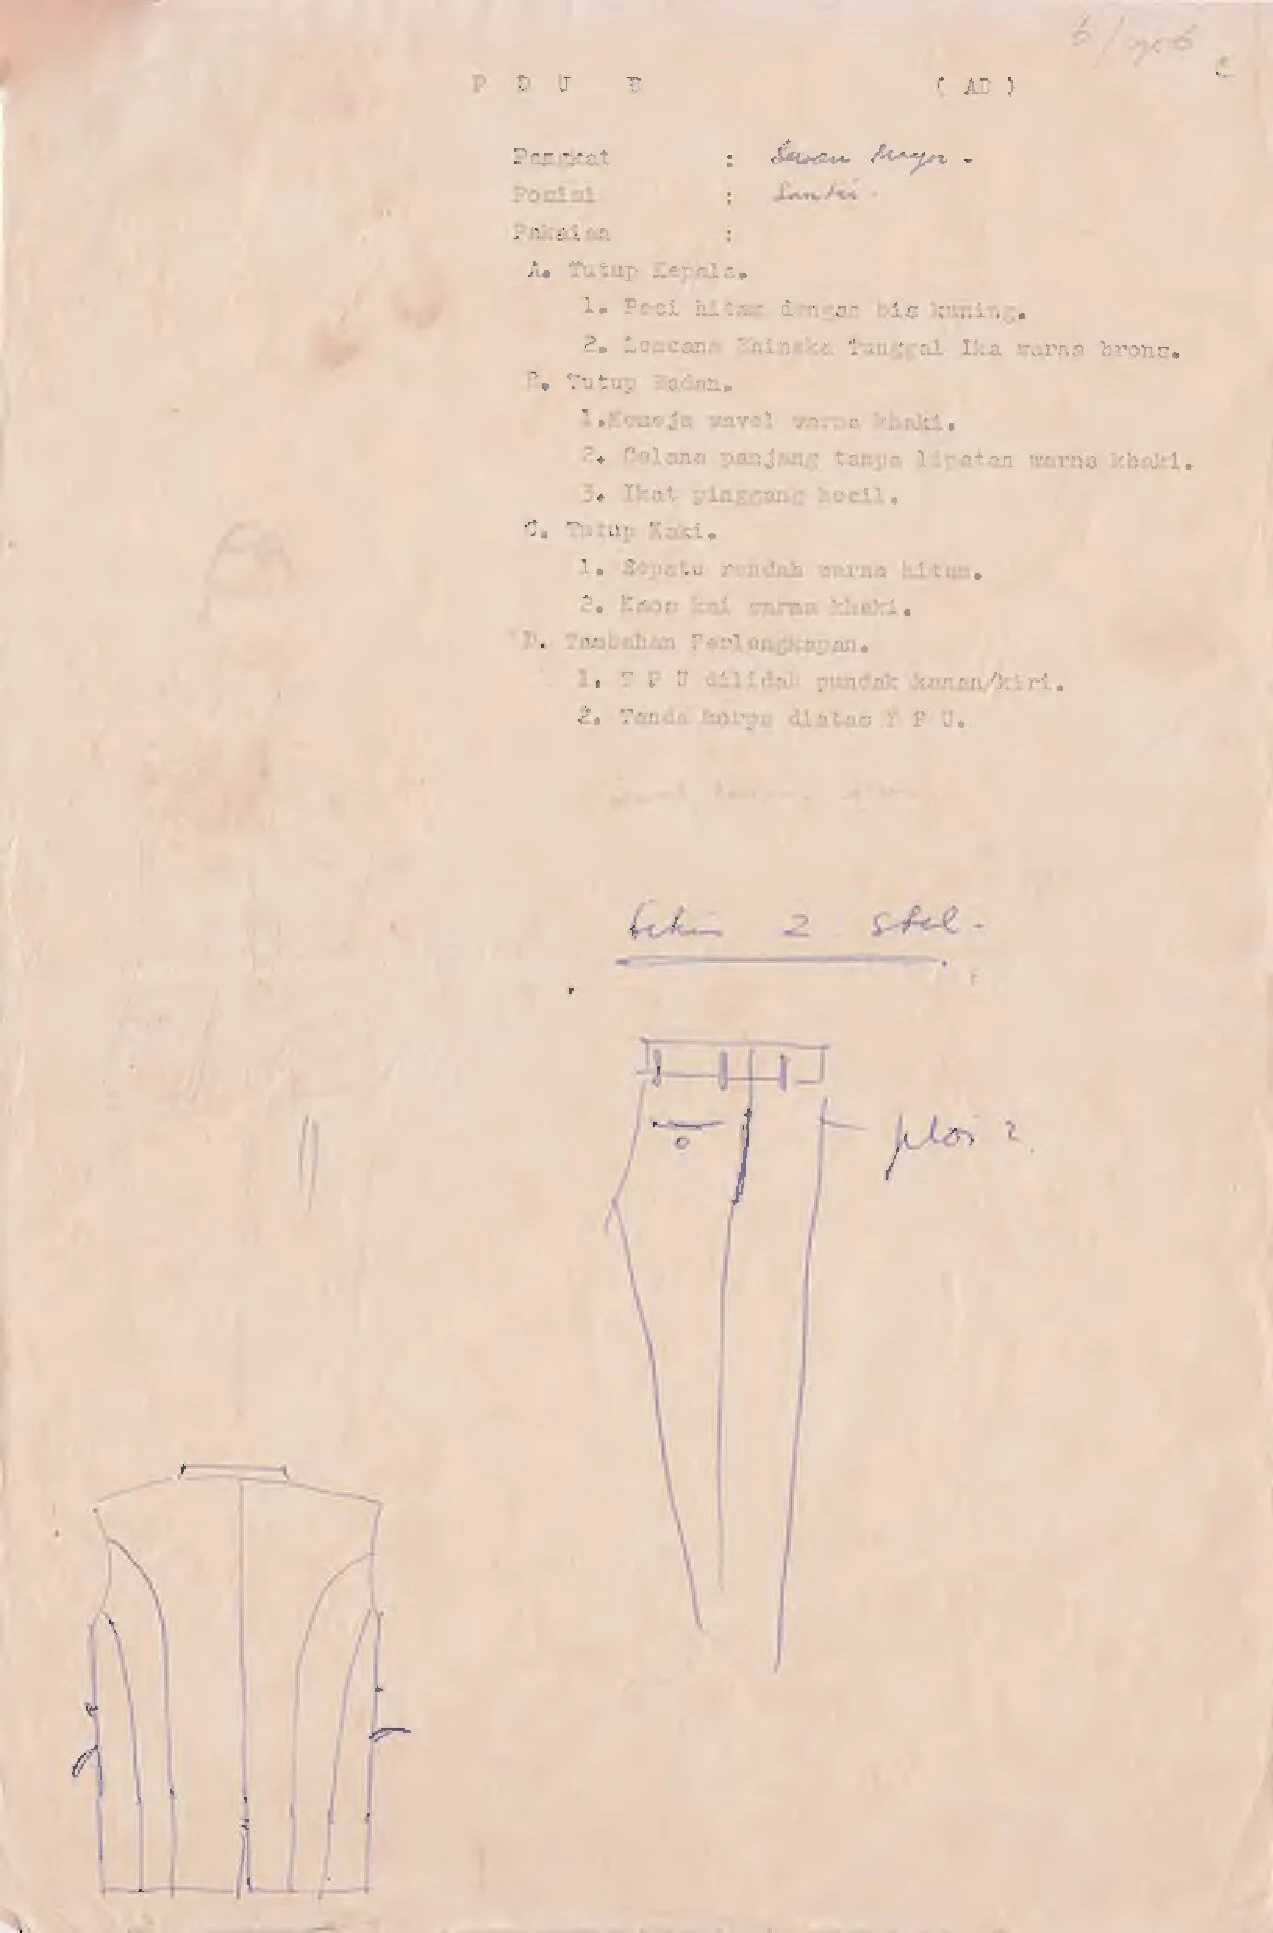 P D U B ( AD )
Pangkat :
Posisi : Santai -
Pakaian :
A. Tutup Kepala.
1. Peci hitam dengan bis kuning.
2. Lencana Bhineka Tunggal Ika warna brons.
B. Tutup Badan.
1.Kemeja wavel warna khaki.
2. Celana panjang tanpa lipatan warna khaki.
3. Ikat pinggang kecil.
C. Tutup Kaki.
1. Sepatu rendah warna hitam.
2. Kaos kai warna khaki.
D. Tambahan Perlengkapan.
1. T P U dilidah pundak kanan/kiri.
2. Tanda korps diatas T P U.
bikin 2 stel -
ploi 2